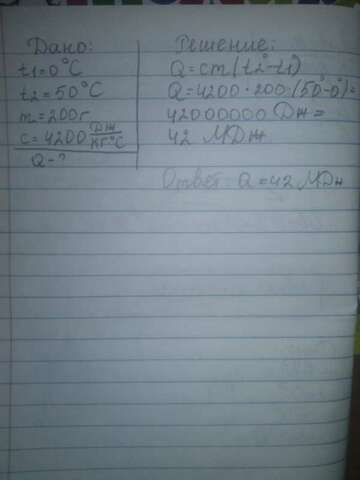 Дано:
t1=0°C
t2=50°C
m=200г
c=4200 Дж/кг°C
Q-?
Решение:
Q=cm(t2°-t1°)
Q=4200·200·(50°-0°)=
42000000 Дж=
42 МДж
Ответ: Q=42 МДж